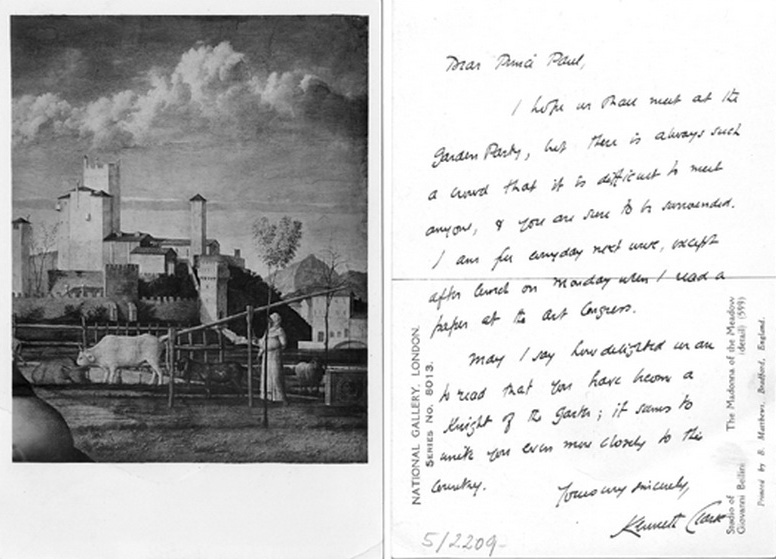 Dear Prince Paul,
I hope we shall meet at the
Garden Party, but there is always such
a crowd that it is difficult to meet
anyone, & you are sure to be surrounded.
I am free everyday next week, except
after lunch on Monday when I read a
paper at the Art Congress.
May I say how delighted we are
to read that you have become a
Knight of the Garter; it seems to
unite you even more closely to this
country.
Yours very sincerely,
Kenneth Clark
NATIONAL GALLERY, LONDON.
SERIES No. 8013.
Studio of
Giovanni Bellini
The Madonna of the Meadow
(detail) (599)
Printed by B. Matthews, Bradford, England.
5/2209-